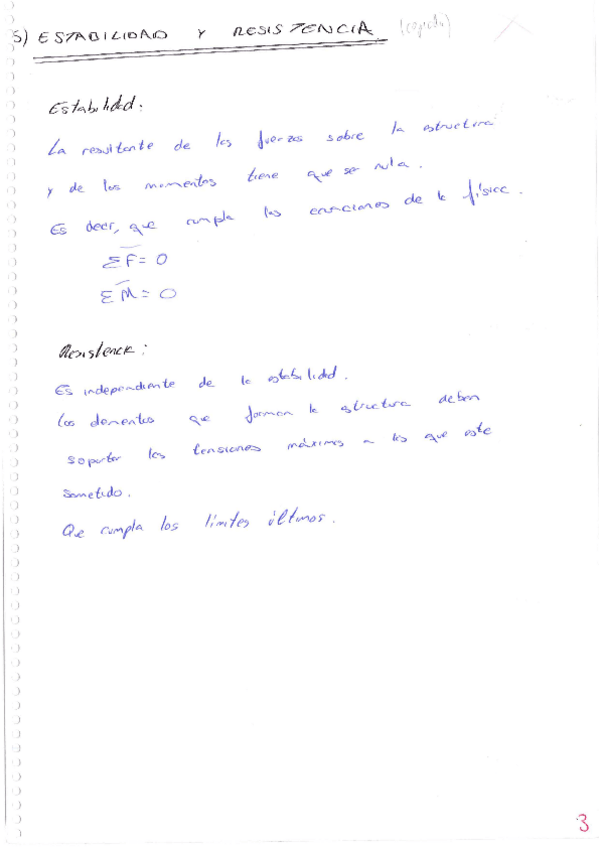 5) ESTABILIDAD Y RESISTENCIA
Estabilidad:
La resultante de las fuerzas sobre la estructura
y de los momentos tiene que ser nula.
Es decir, que cumpla las ecuaciones de la física.
ΣF̅= 0
ΣM̅= 0
Resistencia:
Es independiente de la estabilidad.
Los elementos que forman la estructura deben
soportar las tensiones máximas a las que este
sometido.
Que cumpla los límites últimos.
3